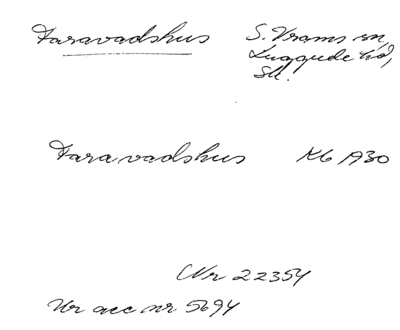 Faravadshus S. Vrams sn,
Luggude hd,
Sk.
Faravadshus Kb 1930
Nr 22354
Ur acc nr 5694